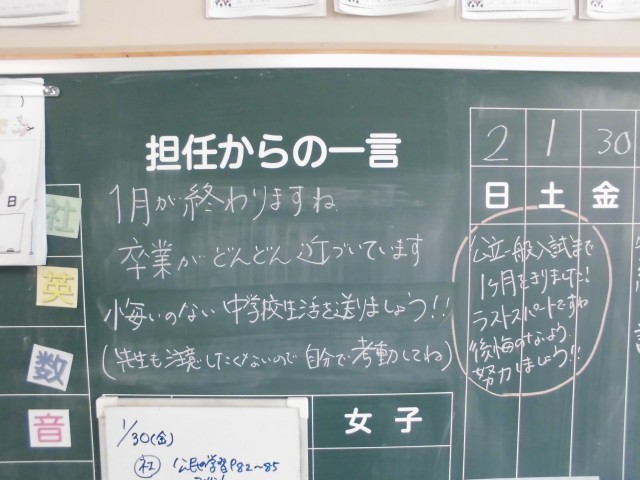 担任からの一言
1月が終わりますね
卒業がどんどん近づいています
悔いのない中学校生活を送りましょう!!
(先生も注意したくないので自分で考動してね)
2 1 30
日 土 金
公立一般入試まで
1ヶ月をきりました!
ラストスパートですね
後悔のないよう
努力しましょう!!
日
社
英
数
音
女子
1/30(金)
社 公民の学習P82~85